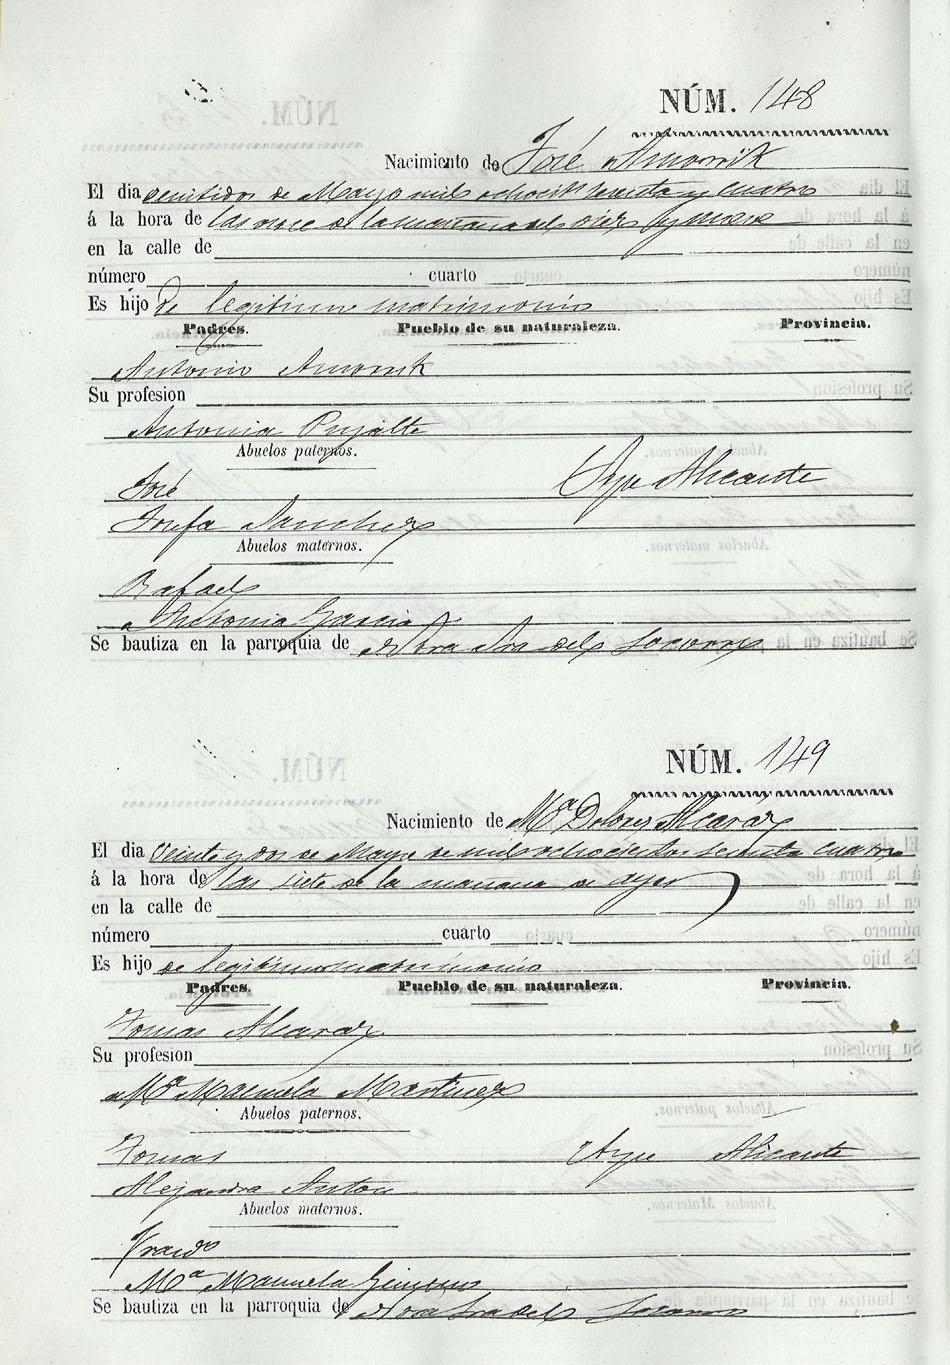 NÚM. 148
Nacimiento de José Amorrik
El dia veintidos de Mayo mil ochocits sesenta y cuatro
á la hora de las once de la mañana del diez y nueve
en la calle de
número cuarto
Es hijo de legitimo matrimonio
Padres. Pueblo de su naturaleza. Provincia.
Antonio Amorrik
Su profesion
Antonia Pujalte
Abuelos paternos.
José Aspe Alicante
Josefa Sanchez
Abuelos maternos.
Rafael
Antonia Garcia
Se bautiza en la parroquia de Ntra Sra del Socorro
NÚM. 149
Nacimiento de Mª Dolores Alcaráz
El dia veinte y dos de Mayo de mil ochocientos sesenta cuatro
á la hora de las siete de la mañana de ayer
en la calle de
número cuarto
Es hijo de legitimo matrimonio
Padres. Pueblo de su naturaleza. Provincia.
Tomas Alcaraz
Su profesion
Mª Manuela Martinez
Abuelos paternos.
Tomas Aspe Alicante
Alejandra Anton
Abuelos maternos.
Franco
Mª Manuela
Se bautiza en la parroquia de Ntra Sra del Socorro